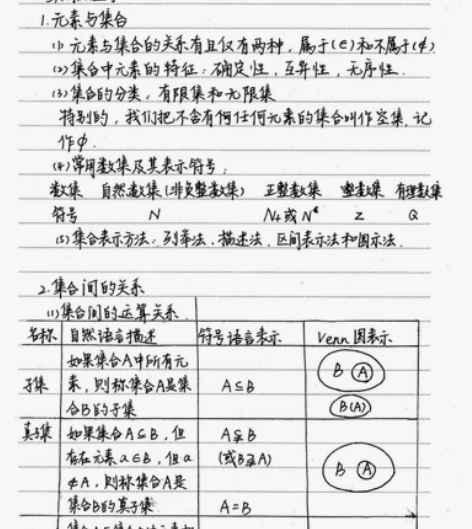 1.元素与集合
(1) 元素与集合的关系有且仅有两种，属于(∈)和不属于(∉)
(2)集合中元素的特征：确定性，互异性，无序性.
(3)集合的分类，有限集和无限集
特别的，我们把不含有何任何元素的集合叫作空集，记
作φ.
(4)常用数集及其表示符号；
数集 自然数集(非负整数集) 正整数集 整数集 有理数集
符号 N N+或N* Z Q
(5)集合表示方法：列举法、描述法、区间表示法和图示法.
2.集合间的关系
(1)集合间的运算关系
名称 自然语言描述 符号语言表示 Venn图表示
如果集合A中所有元
子集 素，则称集合A是集 A⊆B B A
合B的子集 B(A)
真子集 如果集合A⊆B，但 A⫋B
存在元素a∈B，但a (或B⫌A) B A
∉A，则称集合A是
集合B的真子集 A=B